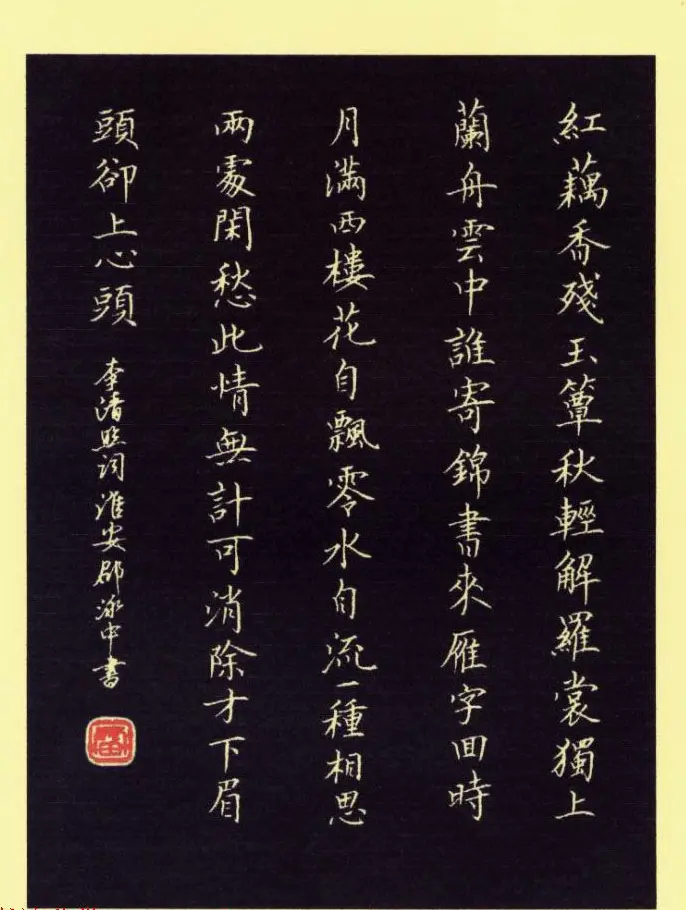 紅藕香殘玉簟秋輕解羅裳獨上
蘭舟雲中誰寄錦書來雁字回時
月滿西樓花自飄零水自流一種相思
兩處閑愁此情無計可消除才下眉
頭卻上心頭
李清照詞淮安郡泳中書